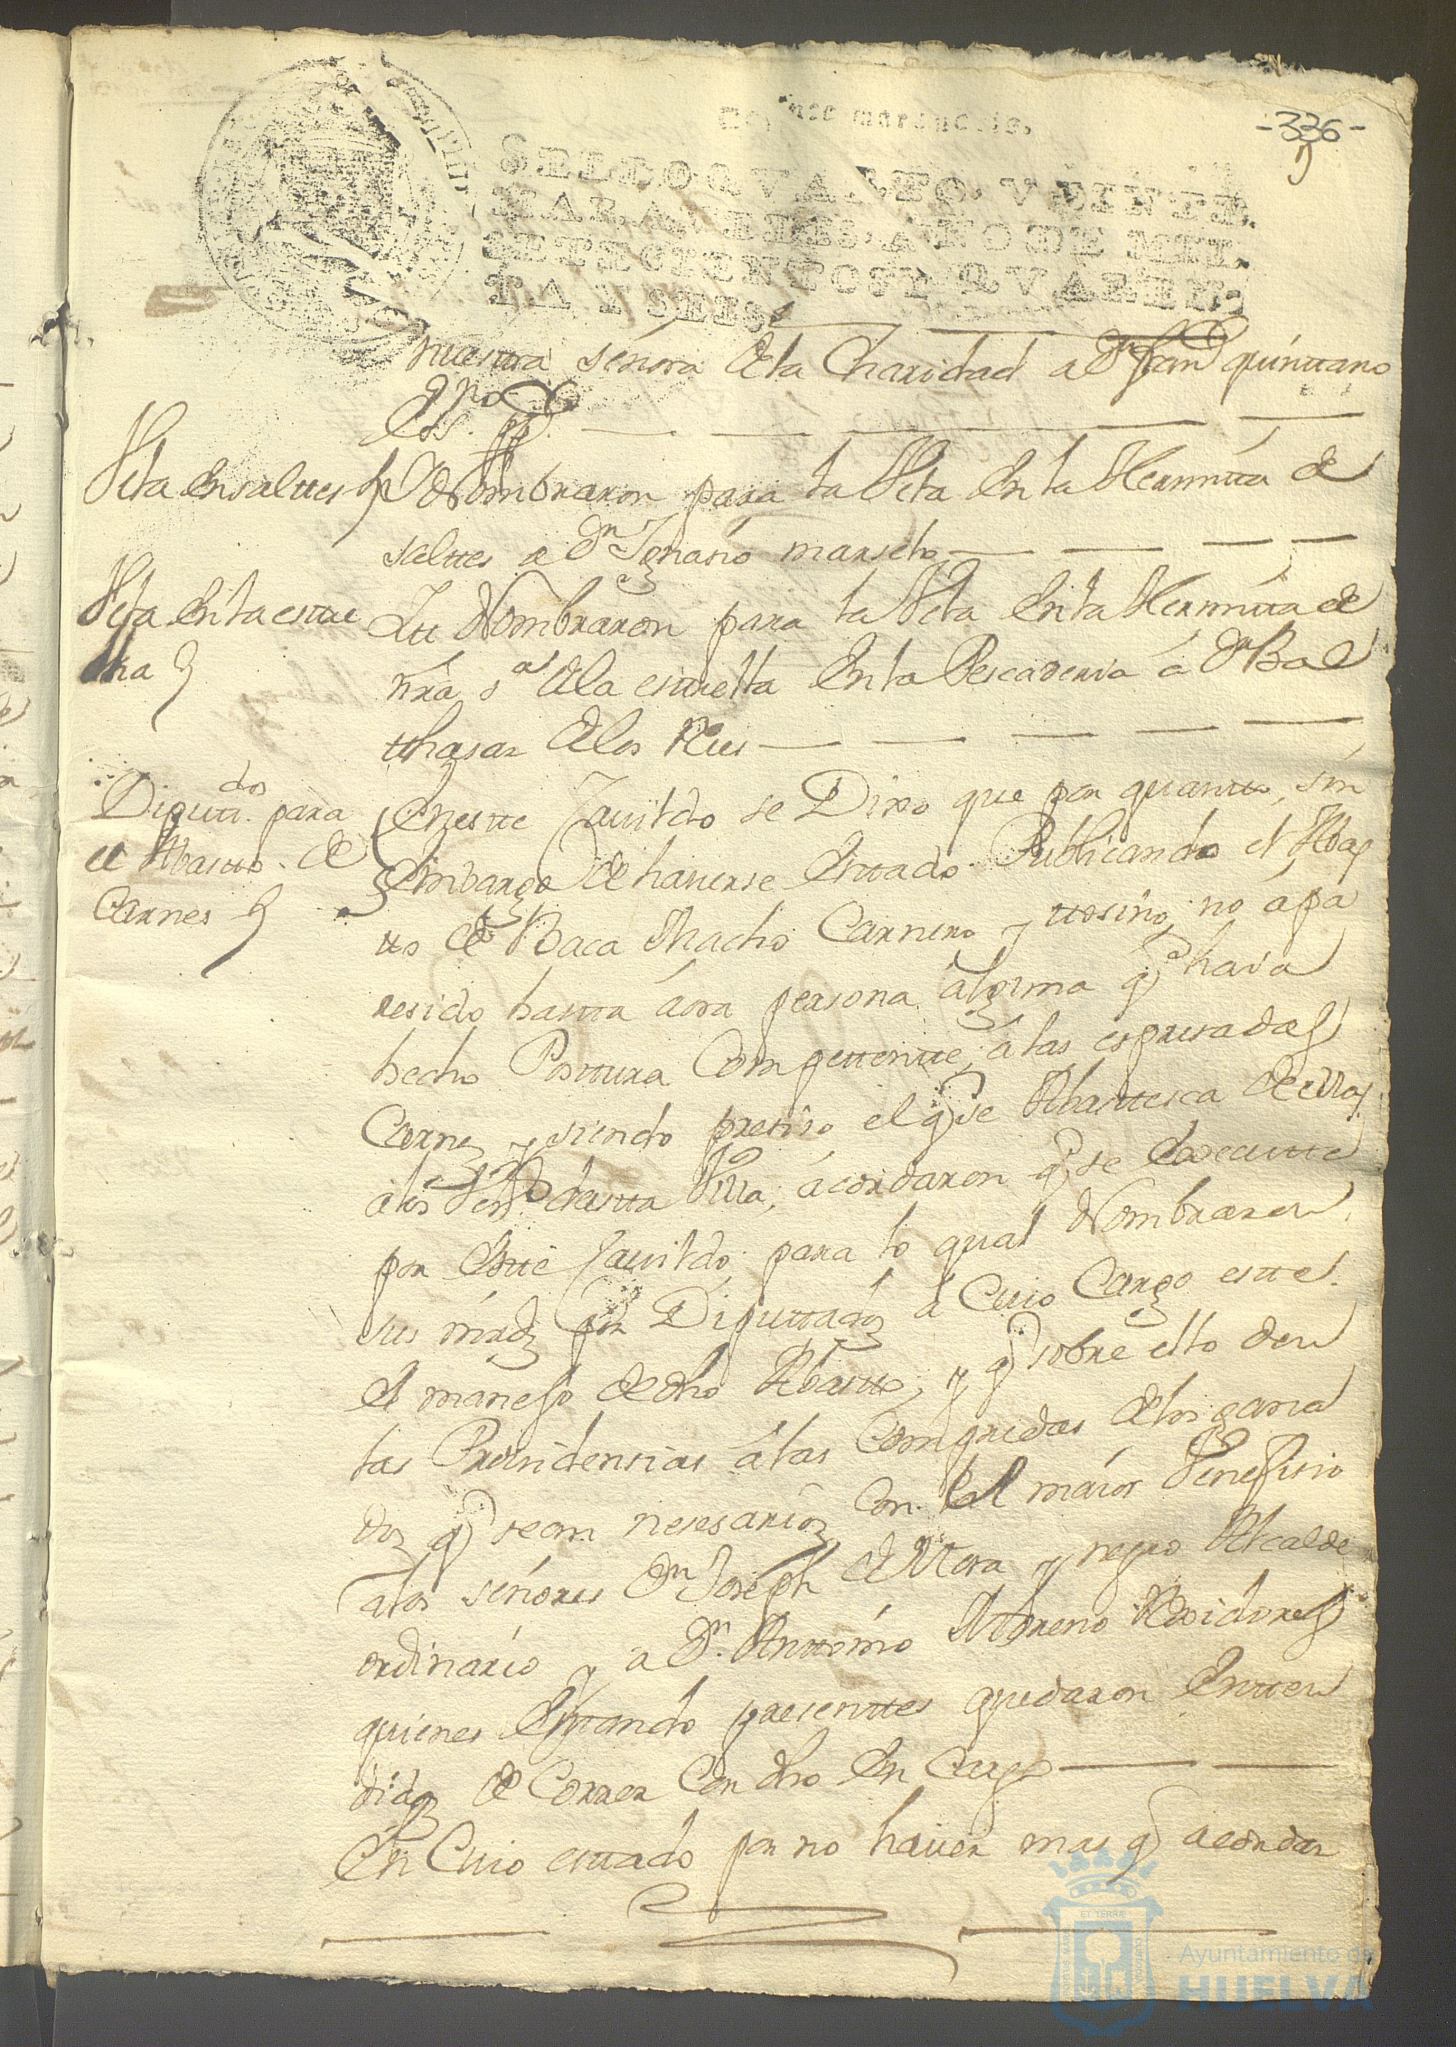 -336-
9
maravedis.
SELLO QVARTO, VEINTE
MARAVEDIS, AÑO DE MIL
SETECIENTOS Y QVAREN-
TA Y SEIS.
nuestra señora de la Charidad a Dn franco quintano
Vela en saltes
Nombraron para la Vela en la Hermita de
saltes a Dn Ygnasio
Vela en la estre
lla
Ytt Nombraron para la Vela en la Hermita de
nra sa de la estrella en la Pescaderia á Dn Bal
thasar de los Ries
Diputtdos para
el Abasto de
Carnes
En este Cavildo se Dixo que por quanto, sin
embargo de haverse estado Publicando el Abas
to de Baca Macho Carnero y ttosino, no á pa
resido hasta áora persona álguna qe haia
hecho Postura Competente, á las espresadas
Carnes y siendo presiso el qe se Abastesca de ellas
a los Veos de esta Villa, ácordaron qe se execute
por este Cavildo, para lo qual Nombraron
sus mrds por Diputtados á Cuio Cargo este
el manejo de dho Abasto, y qe sobre ello den
las Providensias á las Comquidas de los gana
dos qe sean nesesarios Con el maior Benefisio
a los señores Dn Joseph de Mora y negro Alcalde
ordinario y a Dn Anttonio Moreno Rexidores
quienes estando presentes quedaron entten
didos de Correr Con dho en Cargo
En Cuio estado por no haver mas qe acordar
ET TERRÆ
Ayuntamiento de
HUELVA